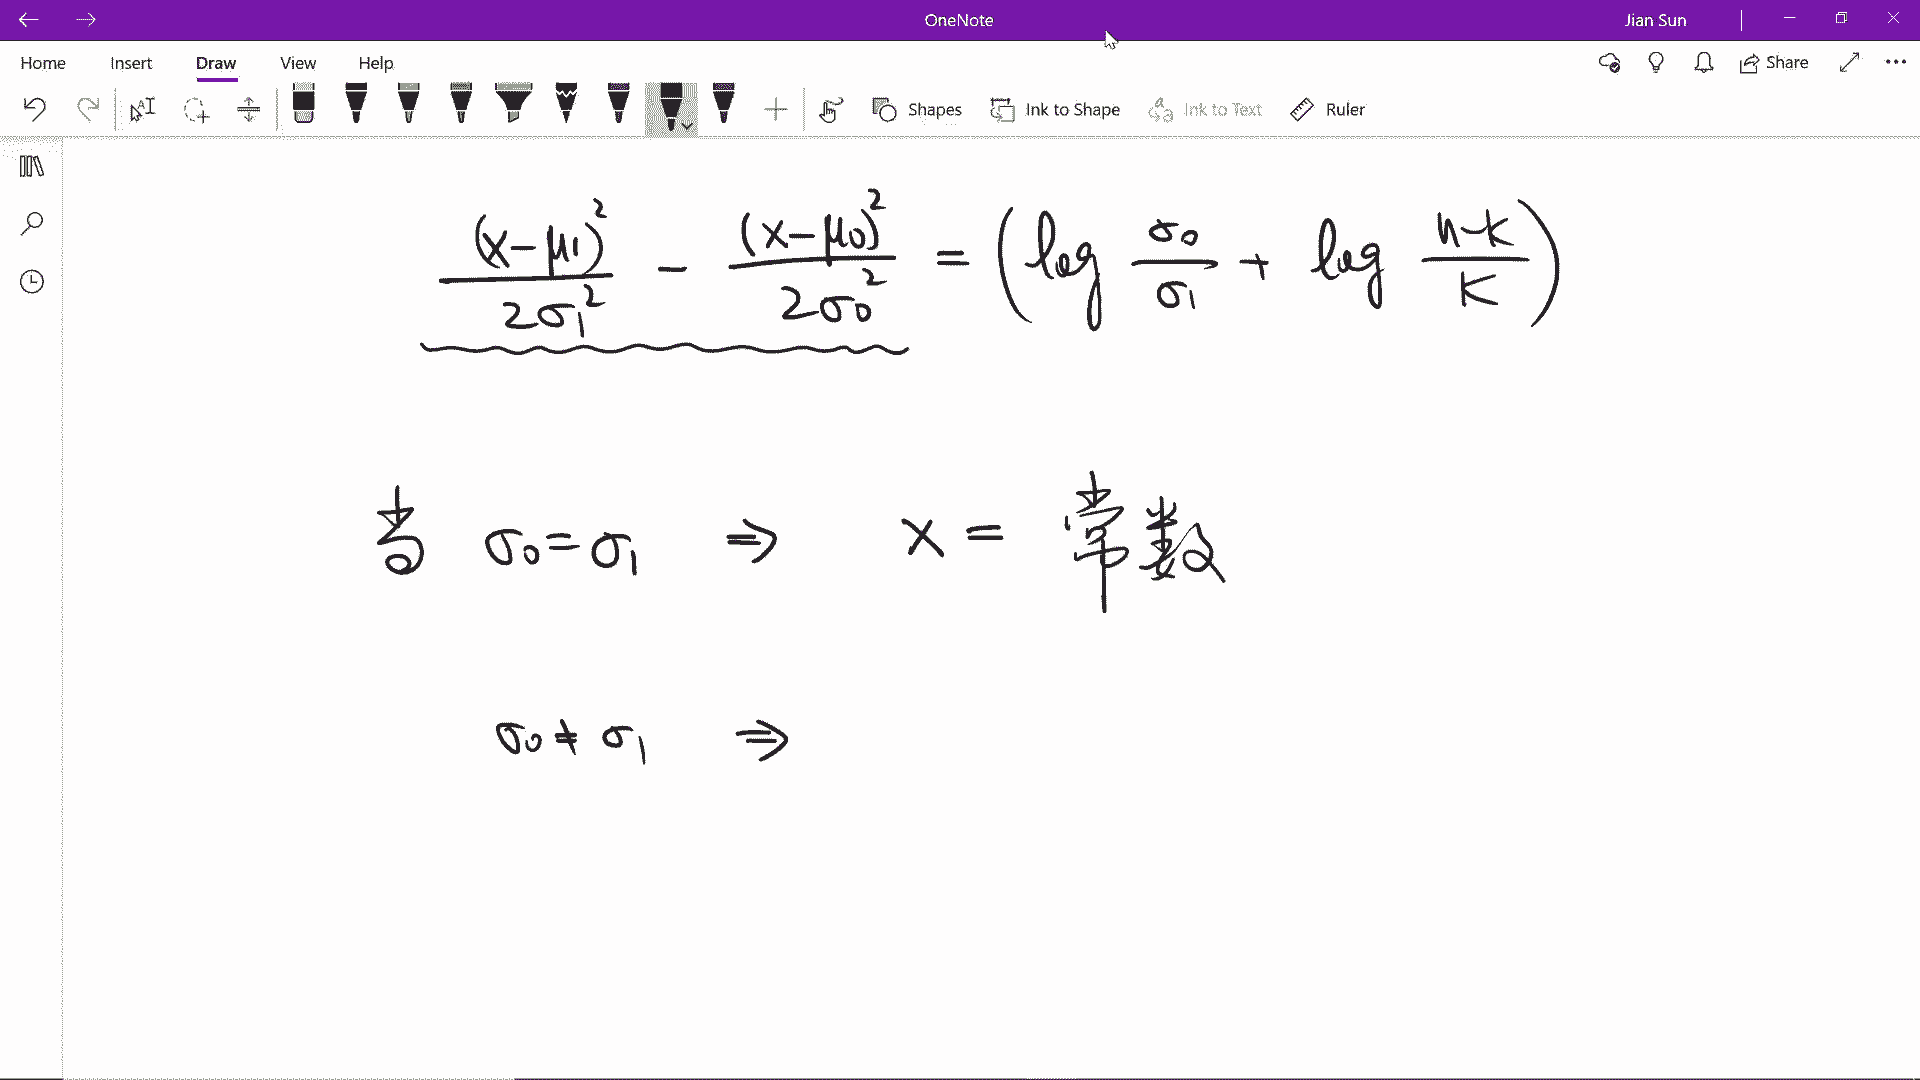 OneNote
Jian Sun
Home Insert Draw View Help
Share
Shapes Ink to Shape Ink to Text Ruler
(x-μ1)²/2σ1² - (x-μ0)²/2σ0² = (log σ0/σ1 + log n-k/k)
当 σ0=σ1 ⇒ x = 常数
σ0≠σ1 ⇒